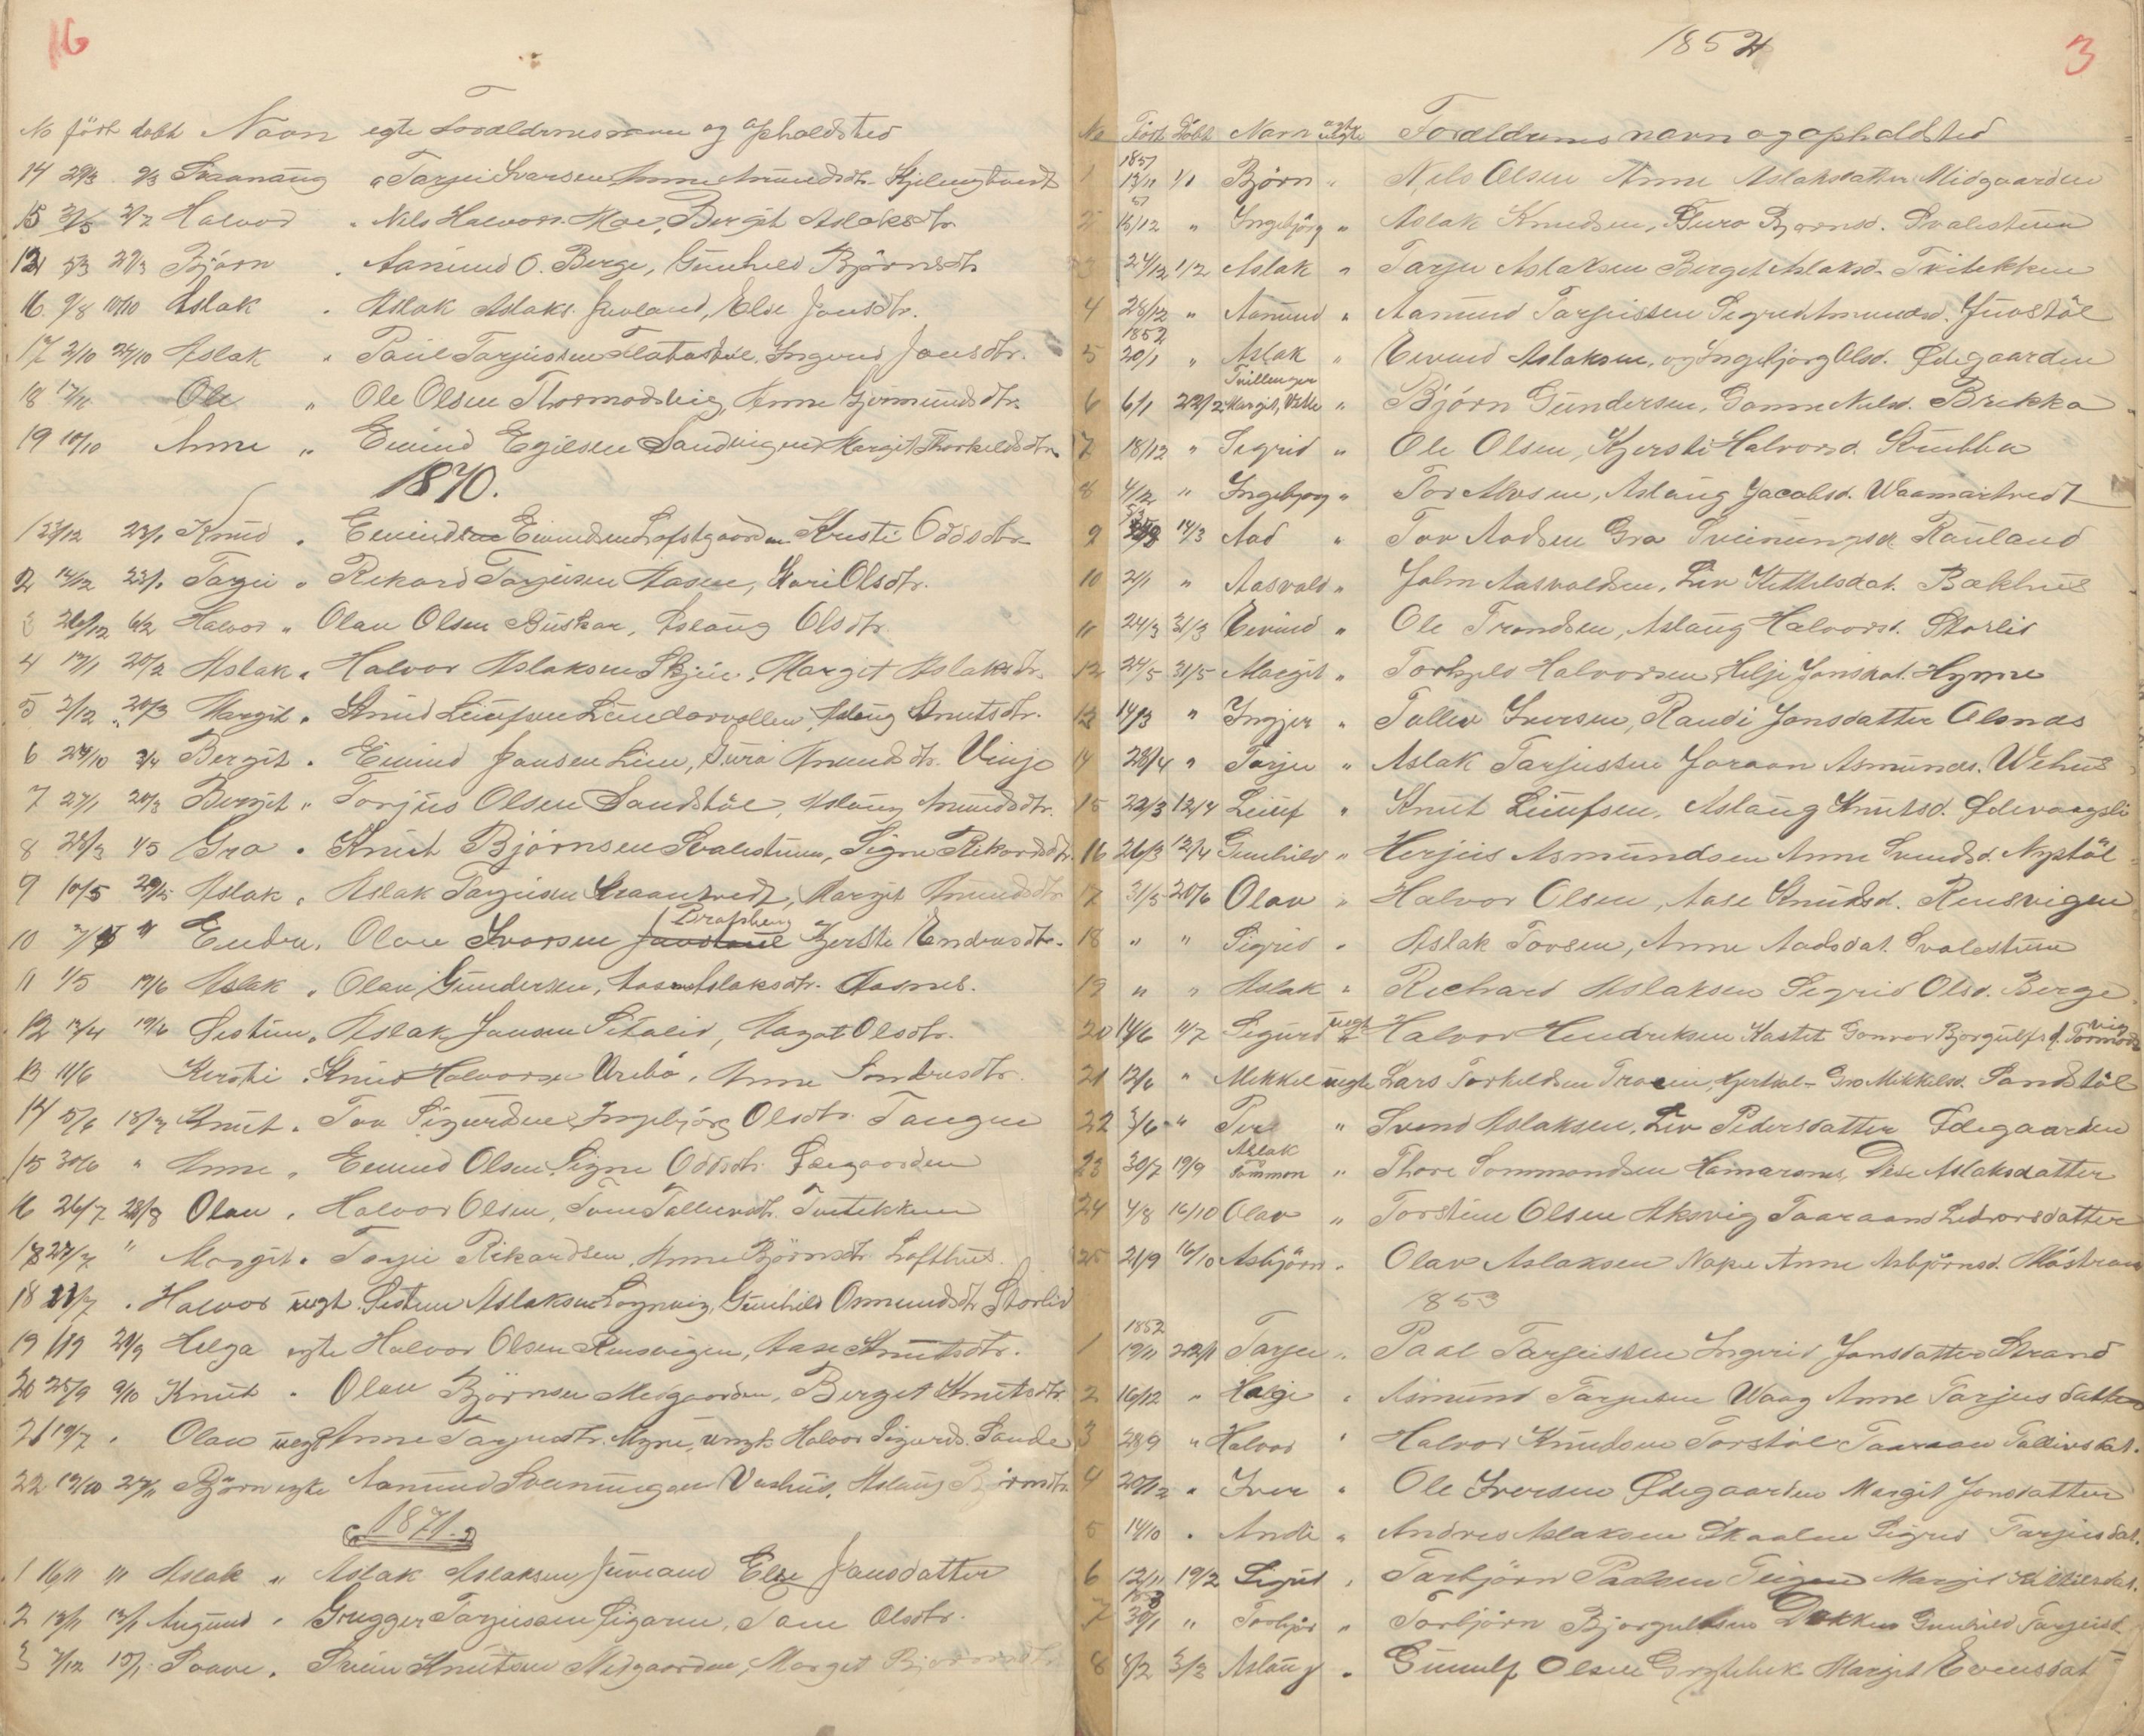 16
No föst döbt Navn egte Foraldrnes navn og Opholdsted
14 29/3 9/3 Svanaug " Tarjei Ivarsen Anne Amundsdtr. Kjelingtvedt
15 2/7 Halvor " Nils Halvors. Moe, Bergit Aslaksdtr.
29/3 Björn " Aamund O. Berge, Gunhild Björnsdtr
16 9/8 10/10 Aslak " Aslak Aslaks. Juvland, Else Jonsdtr.
17 2/10 24/10 Aslak " Paul Tarjeissen Flatastöl, Ingerid Jonsdtr.
18 Ole " Ole Olsen Thormodsvig, Anne Gjermundsdtr.
19 10/10 Anne " Eivind Egilsen Sandvigen Margit Thorkildsdtr
1870.
1 23/12 23/1 Knud " Eivind Eivindsen Loftsgaarden Kristi Oddsdtr
2 14/12 23/1 Tarjei " Rikard Tarjeisen Aasen, Kari Olsdtr.
3 26/12 6/2 Halvor " Olav Olsen Buskar, Aslaug Olsdtr
4 17/1 20/2 Aslak " Halvor Aslaksen Skjei, Margit Aslaksdtr.
5 2/12 20/3 Margit " Knud Leiufsen Lundarvollen, Aslaug Knutsdtr.
6 24/10 3/4 Bergit " Eivind Jonsen Lien, Gura Amundsdtr. Vinje
7 27/1 20/3 Bergit " Torjus Olsen Sandstöl, Aslaug Amundsdtr.
8 28/3 1/5 Gro " Knut Bjørnsen Svalestuen, Signe Rikardsdtr
9 10/5 29/5 Aslak " Aslak Tarjeisen Kraantvedt, Margit Amundsdtr
10 " Endre " Olav Ivarsen Juvstaul Kjersti Endresdtr.
11 1/5 12/6 Aslak " Olav Gundersen, Aase Aslaksdtr. Aasnes.
12 17/4 19/6 Östen " Aslak Jonsen Sitalid, Aagot Olsdtr.
13 11/6 Kersti " Knud Halvorsen Urebö, Anne Sondresdtr.
14 5/6 18/7 Knut " Tov Sigurdsen, Ingebjörg Olsdtr. Tangen
15 30/6 " Anne " Eivind Olsen, Signe Oddsdtr. Ødegaarden
16 26/7 28/8 Olav " Halvor Olsen, Tone Tallevsdtr. Tveitekken
17 27/7 " Margit " Tarjei Rikardsen, Anne Björnsdtr. Lofthus.
18 21/7 " Halvor uegt. Östen Aslaksen Lognvig, Gunhild Osmundsdtr. Storlid
19 1/9 21/9 Helga egte Halvor Olsen Rensvigen, Aase Knutsdtr.
20 25/9 9/10 Knut " Olav Björnsen Midgaarden, Berget Knutsdtr.
21 19/7 " Olav uegt Anne Tarjeisdtr. Myre, ungk Halvor Sigurds. Sande
22 12/10 27/11 Björn egte Aamund Sveinungsen Vaahus, Aslaug Björnsdtr.
1871.
1 16/11 1/1 Aslak " Aslak Aslaksen Juveland Else Jonsdatter
2 13/11 13/1 Augund " Gregger Tarjeissen Sigarne, Tone Olsdtr.
3 7/12 15/1 Saave " Svein Knutsen Midgaarden, Marget Bjørnsdtr
1852
3
No Född Döbt Navn egte uegte Foraldrnes navn og opholdsted
1 1851 13/11 1/1 Björn " Nils Olsen Anne Aslaksdatter Midgaarden
2 51 15/12 " Ingebjörg " Aslak Knudsen, Guro Bjørnsd. Svalestuen
3 24/12 1/2 Aslak " Tarjei Aslaksen Berget Aslaksd. Tvitekken
4 28/12 " Aamund " Aamund Tarjeissen Sigrid Amundsd. Juvstöl
5 1852 20/1 " Aslak " Eivind Aslaksen, og Ingebjorg Olsd. Ødegaarden
6 6/1 22/2 Tvillinger Margit, Vetle " Björn Gundersen, Gonne Nilsd. Brekka
7 18/12 " Sigrid " Ole Olsen, Kjersti Halvorsd. Stubben
8 4/12 " Ingebjorg " Tor Alvsen, Aslaug Jacobsd. Vaamartvedt
9 14/3 Aad " Tov Aadsen Gro Sveinungsd. Rauland
10 2/1 " Aasvald " John Aasvoldsen, Liv Kittelsdat. Bækhus
11 24/3 31/3 Eivind " Ole Trondsen, Aslaug Halvorsd. Storlid
12 24/5 31/5 Margit " Torkjeld Halvorsen, Helje Jonsdat. Hynne
13 14/3 " Ingjer " Tallev Iversen, Randi Jonsdatter Alsnas
14 28/4 " Tarjei " Aslak Tarjeissen Joraan Asmunds. Vehus
15 22/3 12/4 Leiuf " Knut Liufsen, Aslaug Knutsd. Ødevaagsli
16 26/3 12/4 Gunhild " Herjus Asmundsen Anne Svendsd. Nystöl
17 31/5 20/6 Olav " Halvor Olsen, Aase Knutsd. Rensvigen
18 " " Sigrid " Aslak Tovsen, Anne Aadsdat. Svalestuen
19 " " Aslak " Richard Aslaksen Sigrid Olsd. Berge
20 14/6 11/7 Sigurd uegt Halvor Hendriksen Kastet Gonvor Bjorgulfsd. Tormodsvig
21 12/6 " Mikkel uegte Lars Torkildsen Traaen, Hjertdal - Gro Mikkelsd. Sandstöl
22 3/6 " Per " Svend Aslaksen, Liv Pedersdatter Ødegaarden
23 30/7 19/9 Aslak Sommon " Thore Sommondsen Hamarsnes, Dese Aslaksdatter
24 4/8 16/10 Olav " Torstein Olsen Aksvig Taaraand Ledvorsdatter
25 21/9 16/10 Asbjörn " Olav Aslaksen Nape Anne Asbjörnsd. Måstrand
1853
1 1852 19/11 22/1 Tarjei " Paal Tarjeissen Ingerid Jonsdatter Strand
2 16/12 " Helge " Asmund Tarjeisen Vaag Anne Tarjeisdatter
3 28/9 " Halvor " Halvor Knudsen Torstöl Taaraan Tallivsdat.
4 20/12 " Iver " Ole Iversen Ødegaarden Margit Jonsdatter
5 14/10 " Andre " Andres Aslaksen Skaalen Sigrid Tarjeisdat.
6 12/11 19/2 Sigrid " Tarbjörn Paalsen Teigen Margit Kittilsdat.
7 30/1 " Torbjör " Torbjörn Bjorgulfsen Dokken Gunhild Tarjeisd.
8 4/2 3/3 Aslaug " Gunulf Olsen Grytebek Margit Evensdat